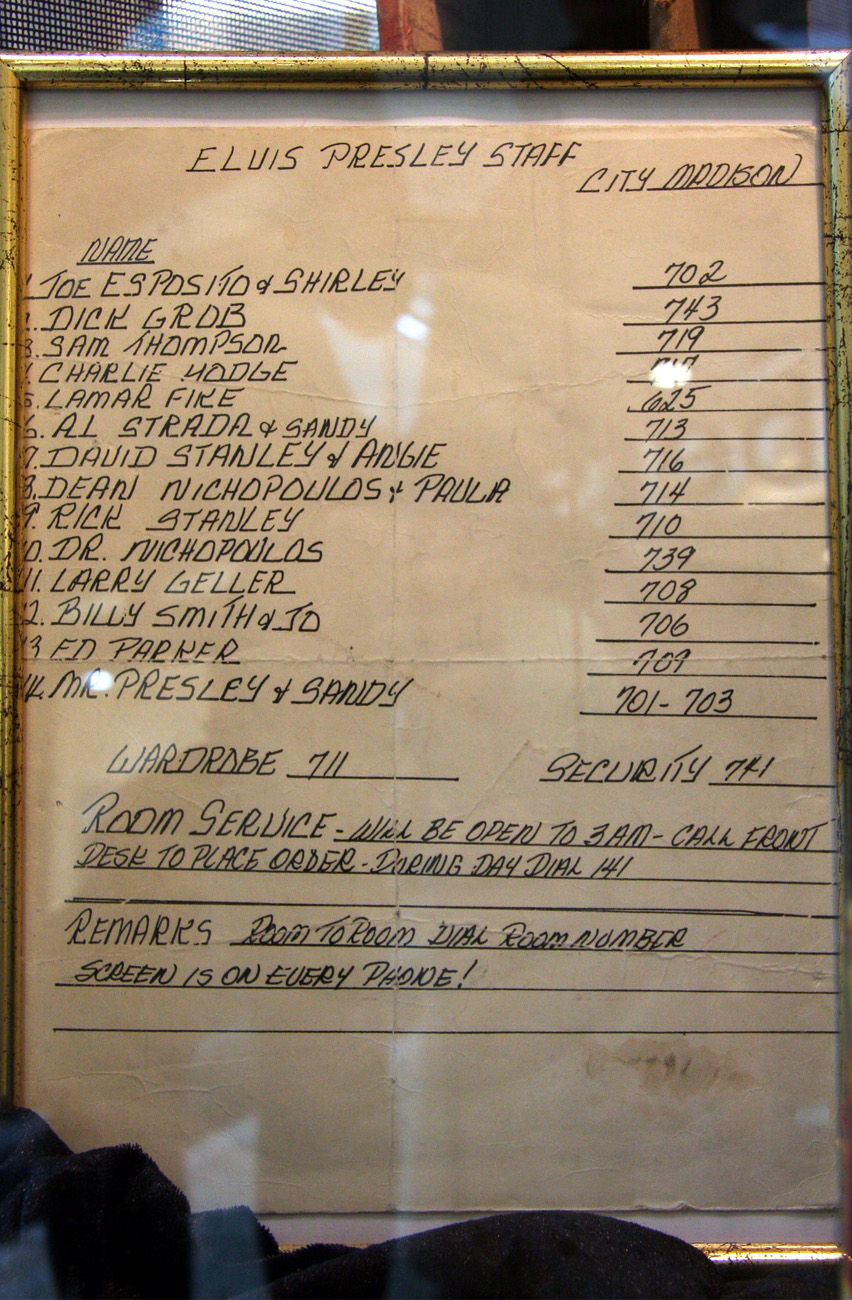 ELVIS PRESLEY STAFF
CITY MADISON
NAME
1. JOE ESPOSITO & SHIRLEY 702
2. DICK GROB 743
3. SAM THOMPSON 719
4. CHARLIE HODGE
5. LAMAR FIKE 625
6. AL STRADA & SANDY 713
7. DAVID STANLEY & ANGIE 716
8. DEAN NICHOPOULOS & PAULA 714
9. RICK STANLEY 710
10. DR. NICHOPOULOS 739
11. LARRY GELLER 708
12. BILLY SMITH & JO 706
13 ED PARKER 709
14. MR. PRESLEY & SANDY 701-703
WARDROBE 711 SECURITY 741
ROOM SERVICE - WILL BE OPEN TO 3 AM - CALL FRONT
DESK TO PLACE ORDER - DURING DAY DIAL 141
REMARKS ROOM TO ROOM DIAL ROOM NUMBER
SCREEN IS ON EVERY PHONE!